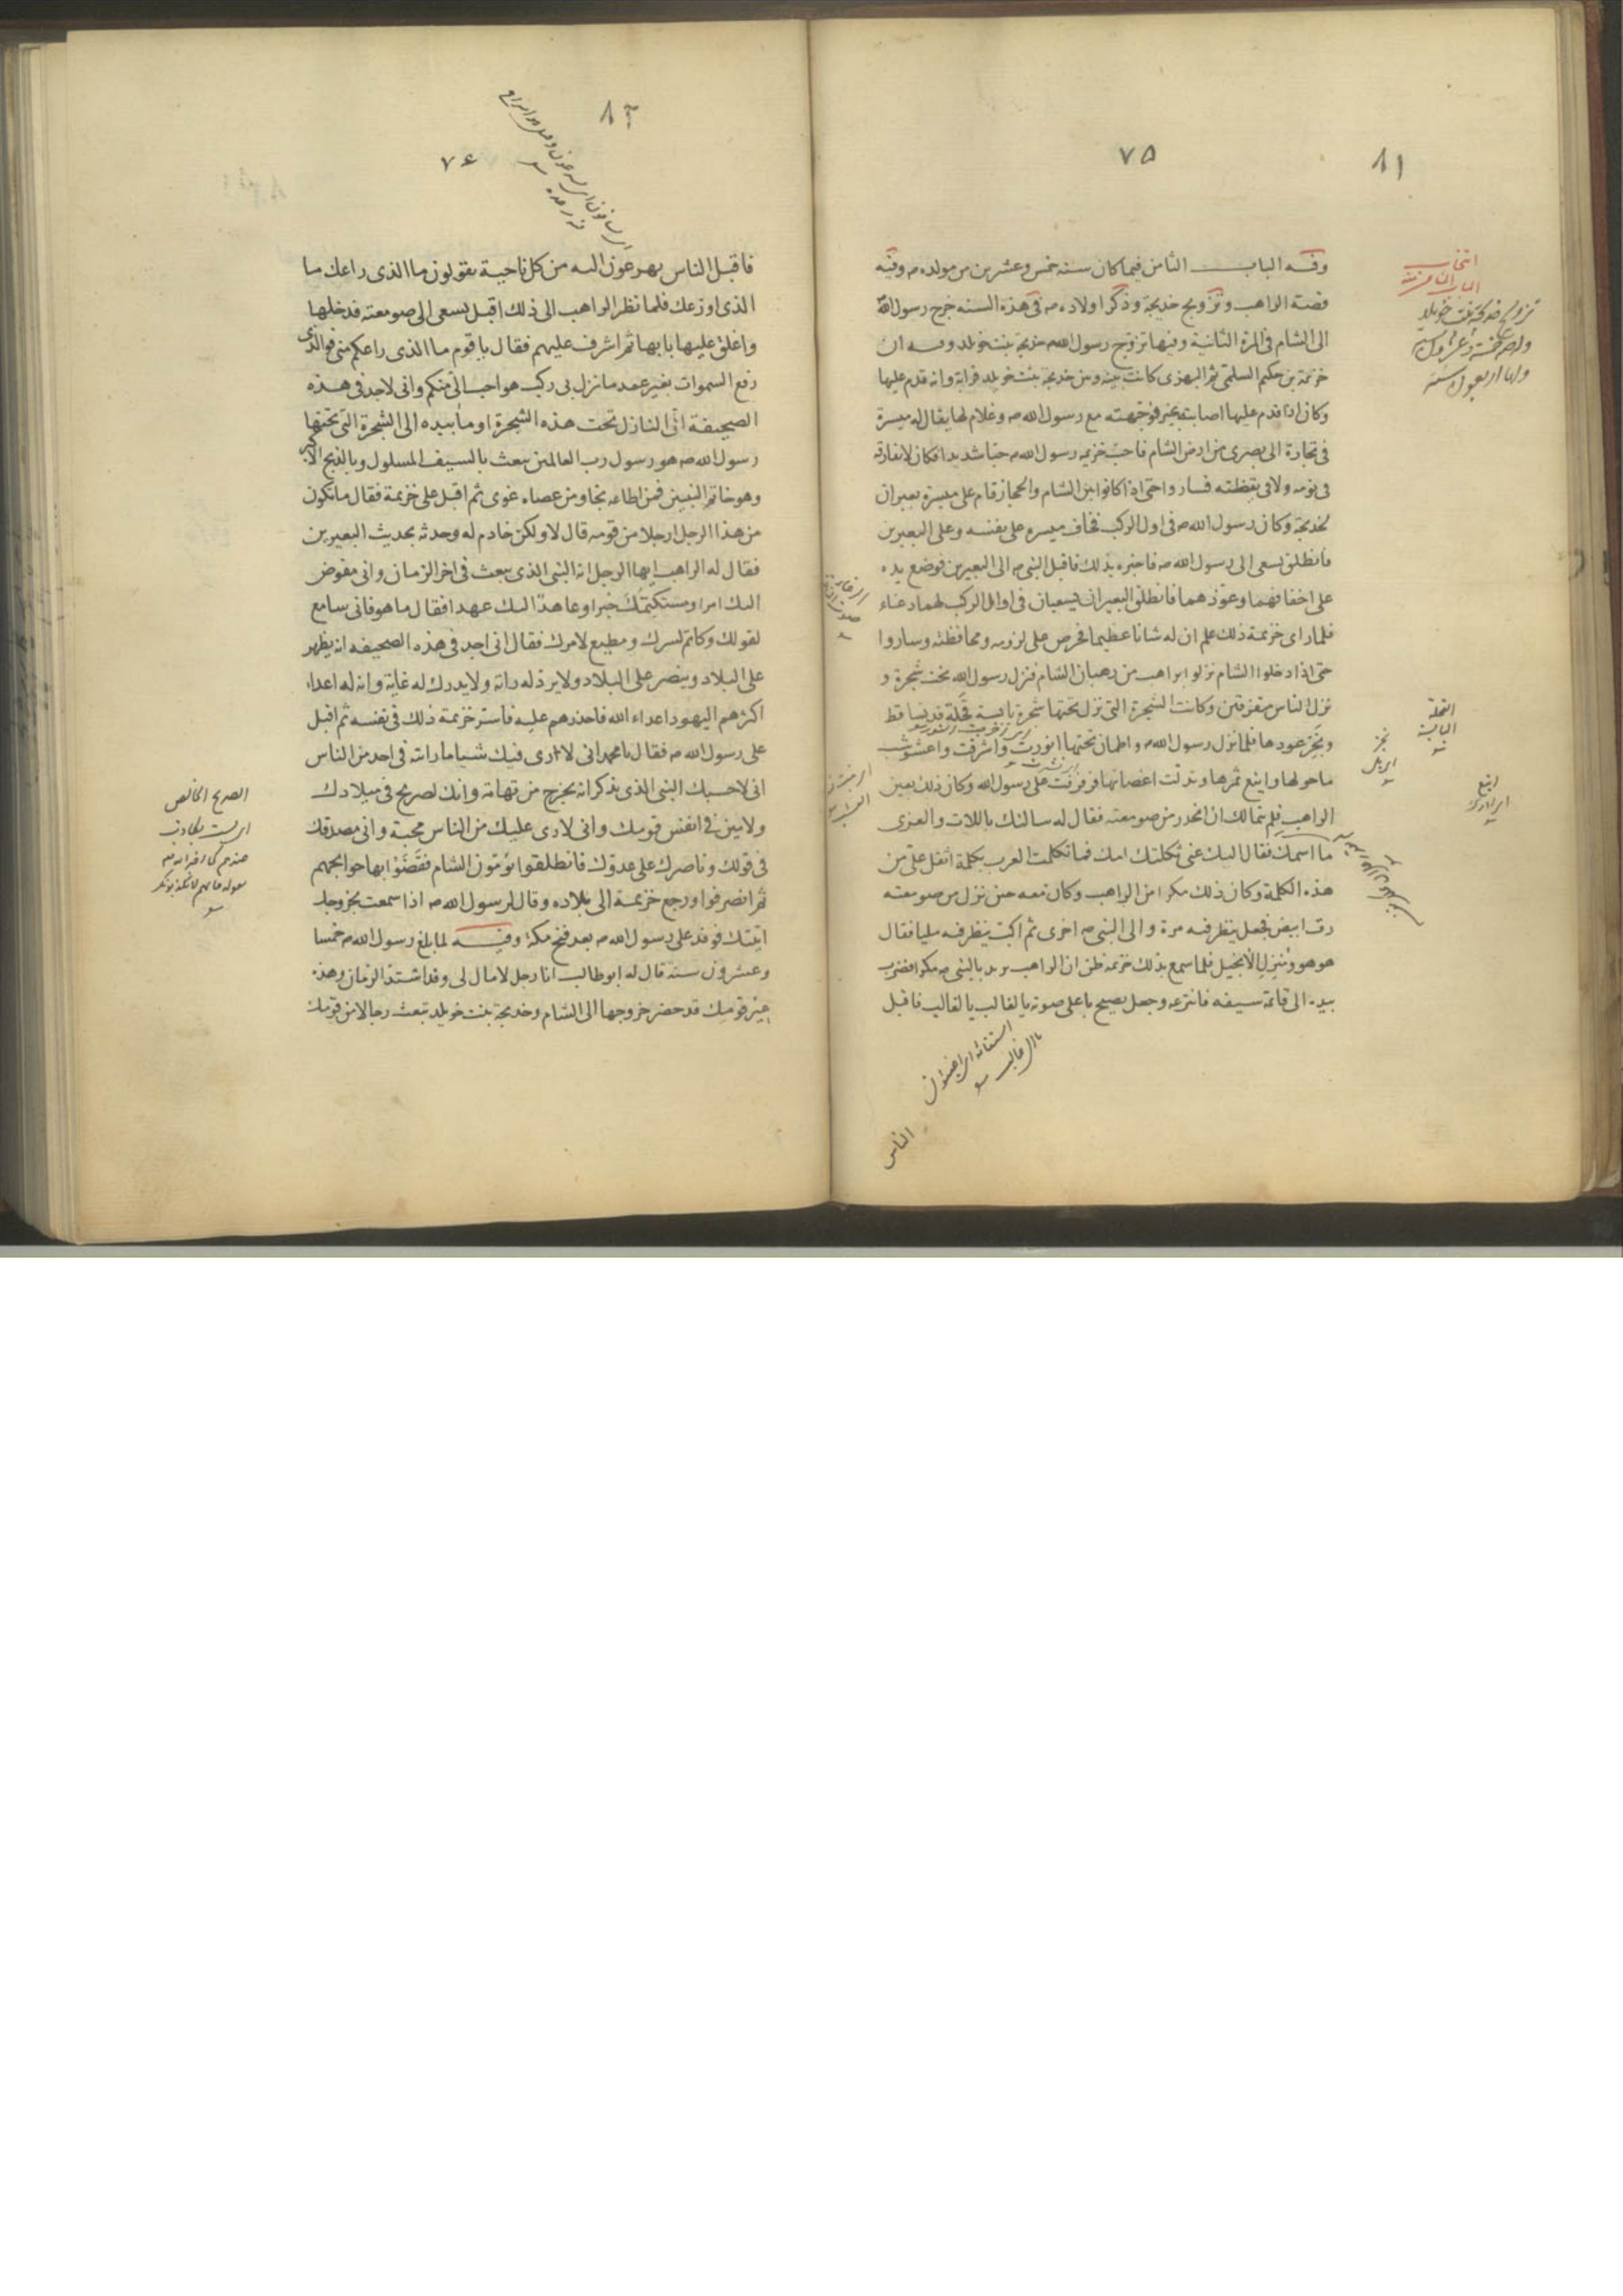 ٧٥
٨١
وفيه الباب الثامن فيما كان سنة خمس وعشرين من مولده ص وفيه
قصة الراهب وتزويج خديجة وذكر اولاده ص في هذه السنه خرج رسول الله
الى الشام فى المرة الثانية وفيها تزوج رسول الله ص خديجة بنت خويلد وفيه ان
خزيمة بن حكيم السلمى ثم البهزى كانت بينه وبين خديجة بنت خويلد قرابة وانه قدم عليها
وكان اذا قدم عليها اصابته بخير فوجهته مع رسول الله ص وغلام لها يقال له ميسرة
فى تجارة الى بصرى من ارض الشام فاحب خزيمه رسول الله ص حبا شديدا فكان لا يفارقه
فى نومه ولا فى يقظته فساروا حتى اذا كانوا بين الشام والحجاز قام على ميسرة بعيران
لخديجة وكان رسول الله ص فى اول الركب فخاف ميسره على نفسه وعلى البعيرين
فانطلق يسعى الى رسول الله ص فاخبره بذلك فاقبل النبى ص الى البعيرين فوضع يده
على اخفافهما وعوذهما فانطلق البعيران يسعيان فى اوائل الركب لهما رغاء
فلما راى خزيمة ذلك علم ان له شانا عظيما فحرص على لزومه ومحافظته وساروا
حتى اذا دخلوا الشام نزلوا براهب من رهبان الشام فنزل رسول الله تحت شجرة و
نزل الناس متفرقين وكانت الشجرة التى نزل تحتها شجرة يابسة قحلة قد تساقط
ونخر عودها فلما نزل رسول الله ص واطمان تحتها انورت واشرقت واعشوشب
ما حولها واينع ثمرها وتدلت اغصانها فرفرفت على رسول الله وكان ذلك بعين
الراهب فلم يتمالك ان انحدر من صومعته فقال له سالتك باللات والعزى
ما اسمك فقال اليك عنى ثكلتك امك فما تكلمت العرب بكلمة اثقل على من
هذه الكلمة وكان ذلك مكرا من الراهب وكان معه حين نزل من صومعته
رق ابيض فجعل ينظر فيه مرة والى النبى ص اخرى ثم اكب ينظر فيه مليا فقال
هو هو ومنزل الانجيل فلما سمع بذلك خزيمه ظن ان الراهب يريد بالنبى ص مكرا فضرب
بيده الى قائمة سيفه فانتزعه وجعل يصيح باعلى صوته يا لغالب يا لغالب فاقبل
النخلة
اليابسة
الناس
٨٢
٧٤
فاقبل الناس يهرعون اليه من كل ناحية يقولون ما الذى راعك ما
الذى اوزعك فلما نظر الراهب الى ذلك اقبل يسعى الى صومعته فدخلها
واغلق عليها بابها ثم اشرف عليهم فقال يا قوم ما الذى راعكم منى فو الذى
رفع السموات بغير عمد ما نزل بى ركب هو احب الى منكم وانى لاجد فى هذه
الصحيفة ان النازل تحت هذه الشجرة اوما بيده الى الشجرة التى تحتها
رسول الله ص هو رسول رب العالمين يبعث بالسيف المسلول وبالذبح الاكبر
وهو خاتم النبيين فمن اطاعه نجا ومن عصاه غوى ثم اقبل على خزيمة فقال ما تكون
من هذا الرجل ارجلا من قومه قال لا ولكن خادم له وحدثه بحديث البعيرين
فقال له الراهب ايها الرجل انه النبى الذى يبعث فى اخر الزمان وانى مفوض
اليك امرا ومستكتمك خبرا وعاهد اليك عهدا فقال ما هو فانى سامع
لقولك وكاتم لسرك ومطيع لامرك فقال انى اجد فى هذه الصحيفه انه يظهر
على البلاد وينصر على البلاد ولا يرد له راية ولا يدرك له غاية وانه له اعداء
اكثرهم اليهود اعداء الله فاحذرهم عليه فاستر خزيمة ذلك فى نفسه ثم اقبل
على رسول الله ص فقال يا محمد انى لارى فيك شيا ما رايته فى احد من الناس
انى لاحسبك النبى الذى يذكر انه يخرج من تهامة وانك لصريح فى ميلادك
ولامين فى انفس قومك وانى لارى عليك من الناس محبة وانى مصدقك
فى قولك وناصرك على عدوك فانطلقوا يؤمون الشام فقضوا بها حوايجهم
ثم انصرفوا ورجع خزيمة الى بلاده وقال لرسول الله ص اذا سمعت بخروجك
اتيتك فوفد على رسول الله ص بعد فتح مكة وفيه لما بلغ رسول الله ص خمسا
وعشرون سنة قال له ابو طالب انا رجل لا مال لى وقد اشتد الزمان وهذه
عير قومك قد حضر خروجها الى الشام وخديجة بنت خويلد تبعث رجالا من قومك
الصريح الخالص